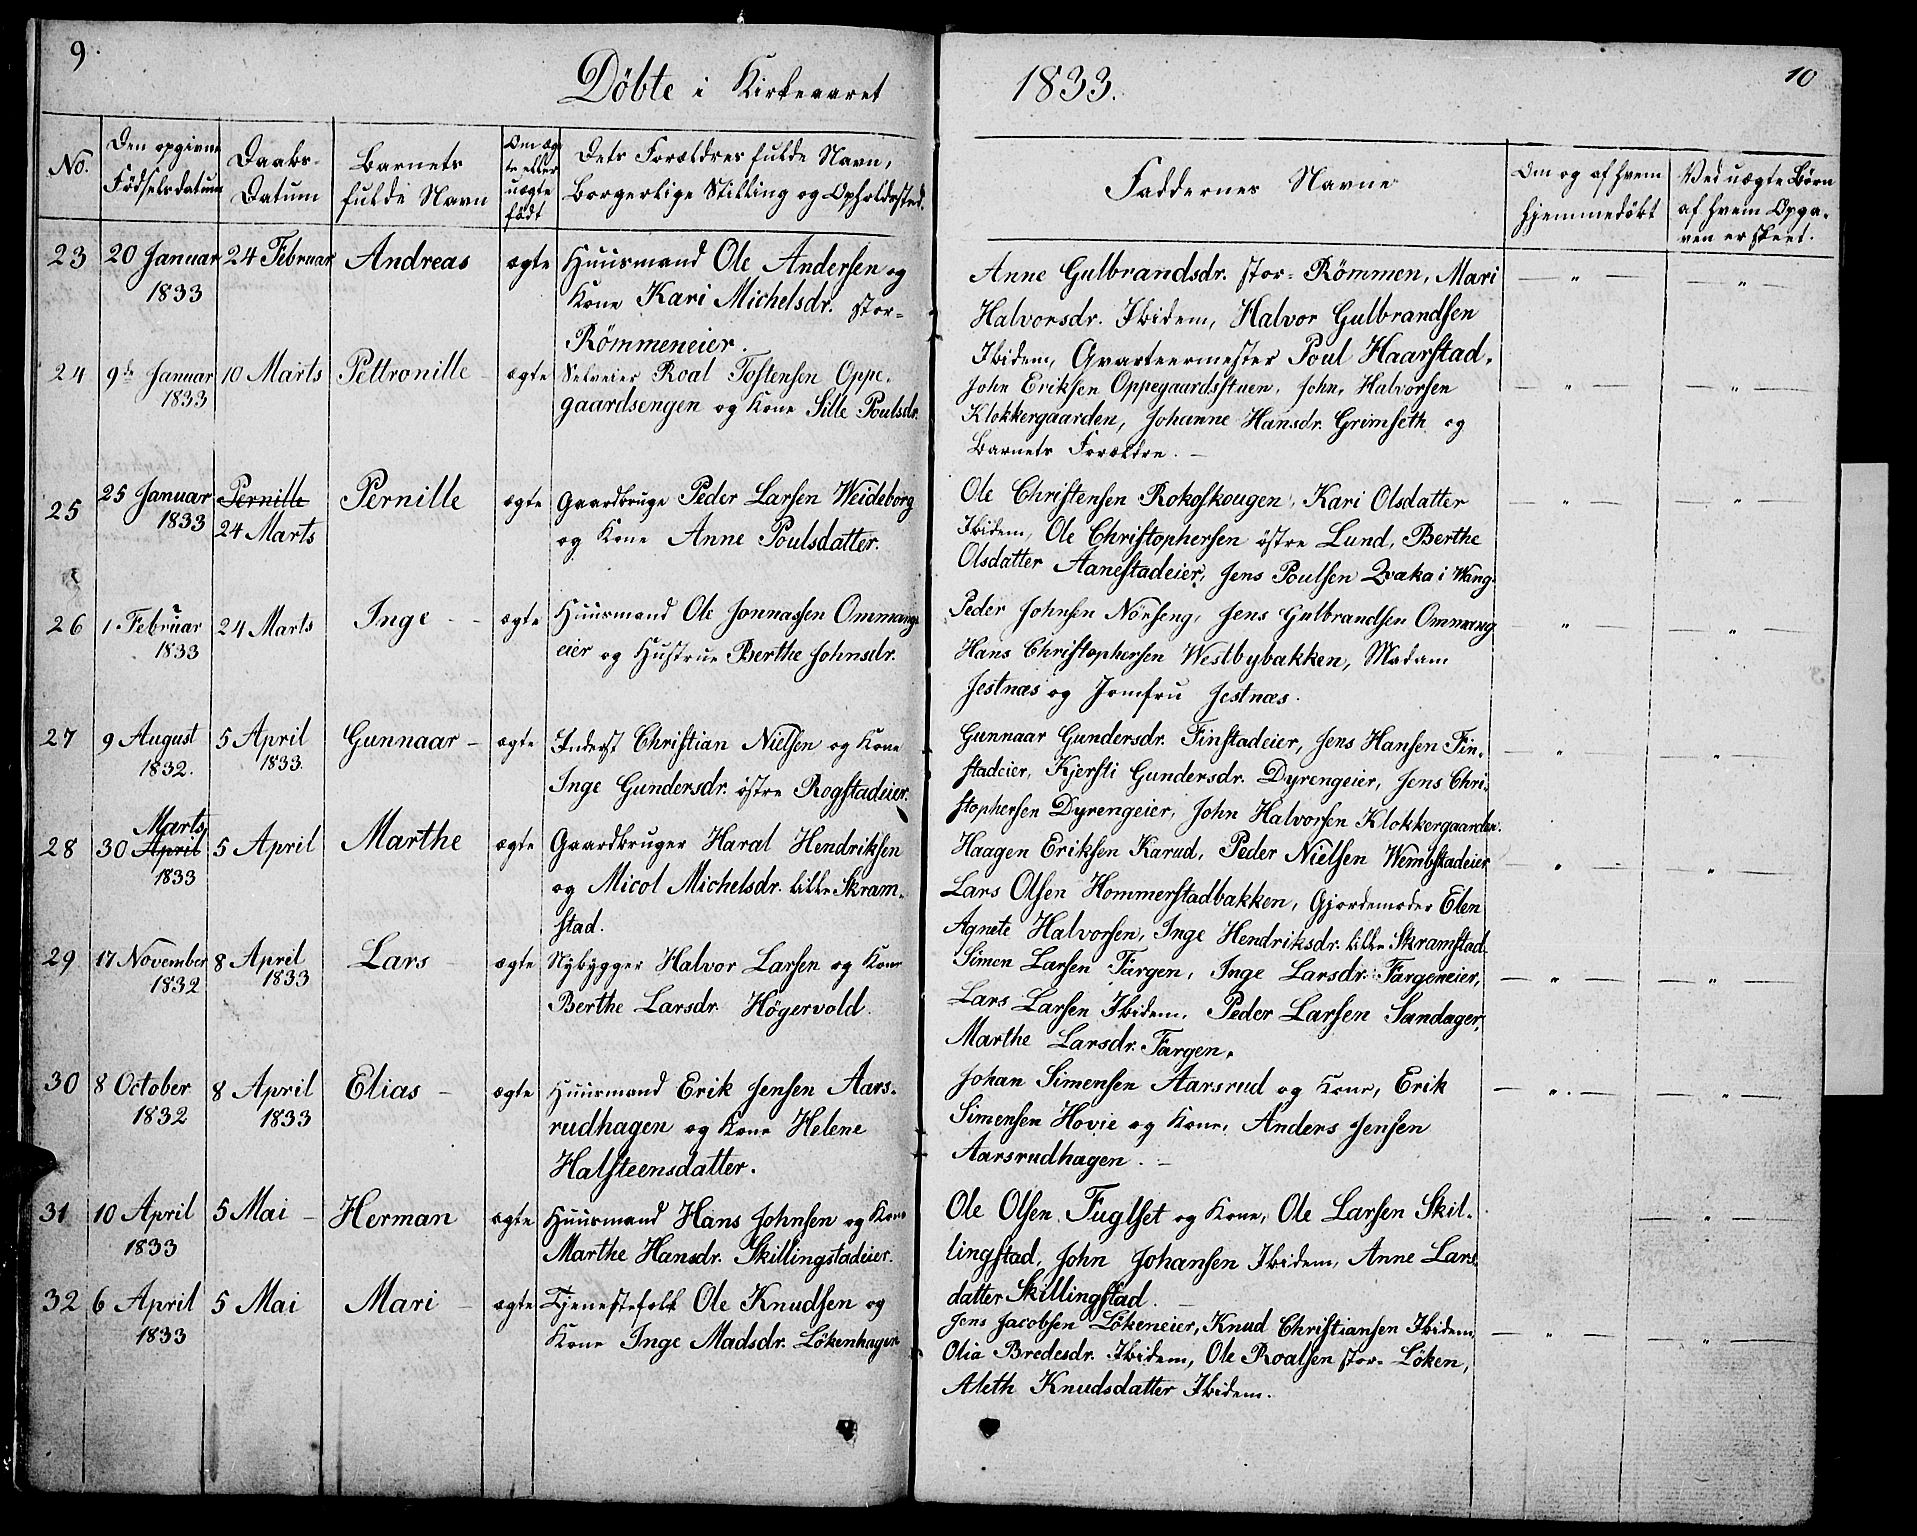 9.
Döbte i Kirkeaaret
1833.
10
No.
Den opgivne
Födselsdatum
Daabs-
Datum
Barnets
fulde Navn
Om æg
te eller
uægte
födt
Dets Forældres fulde Navn,
Borgerlige Stilling og Opholdssted.
Faddernes Navne
Om og af hvem
hjemmedøbt
Ved uægte Børn
af hvem Opga-
ven er skeet.
23 20 Januar 24 Februar Andreas ægte Huusmand Ole Andersen og
1833 Kone Kari Michelsdr. stor-
Römmeneier.
Anne Gulbrandsdr. stor- Römmen, Mari
Halvorsdr. Ibidem, Halvor Gulbrandsen
Ibidem, Qvarteermester Poul Haarstad.
24 9de Januar 10 Marts Pettronille ægte Selveier Roal Tostensen Oppe-
1833 gaardsengen og Kone Sille Poulsdr.
John Eriksen Oppegaardsstuen, John Halvorsen
Klokkergaarden, Johanne Hansdr. Grimseth og
Barnets Forældre.
25 25 Januar Pernille Pernille ægte Gaardbruge Peder Larsen Weideborg
1833 24 Marts og Kone Anne Poulsdatter.
Ole Christensen Rokoskougen, Kari Olsdatter
Ibidem, Ole Christophersen östre Lund, Berthe
Olsdatter Aanestadeier, Jens Poulsen Qvaka i Wang.
26 1 Februar 24 Marts Inge ægte Huusmand Ole Jonnassen Ommang-
1833 eier og Hustrue Berthe Johnsdr.
Peder Johnsen Nörseng, Jens Gulbrandsen Ommang
Hans Christophersen Westbybakken, Madam
Jestnæs og Jomfru Jestnæs.
27 9 August 5 April Gunnaar ægte Inderst Christian Nielsen og Kone
1832. 1833. Inge Gundersdr. östre Rogstadeier.
Gunnaar Gundersdr. Finstadeier, Jens Hansen Fin-
stadeier, Kjersti Gundersdr. Dyrengeier, Jens Chri-
stophersen Dyrengeier, John Halvorsen Klokkergaarden.
Marts
28 30 April 5 April Marthe ægte Gaardbruger Haral Hendriksen
1833 og Micol Michelsdr. lille Skram-
stad.
Haagen Eriksen Karud, Peder Nielsen Wembstadeier
Lars Olsen Hommerstadbakken, Gjordemoder Elen
Agnete Halvorsen, Inge Hendriksdr. lille Skramstad.
29 17 November 8 April Lars ægte Nybygger Halvor Larsen og Kone
1832 1833 Berthe Larsdr. Högervold.
Simen Larsen Fargen, Inge Larsdr. Fargeneier,
Lars Larsen Ibidem, Peder Larsen Sandager,
Marthe Larsdr. Fargen.
30 8 October 8 April Elias ægte Huusmand Erik Jensen Aars-
1832 1833 rudhagen og Kone Helene
Halsteensdatter.
Johan Simensen Aarsrud og Kone, Erik
Simensen Hovie og Kone, Anders Jensen
Aarsrudhagen.
31 10 April 5 Mai Herman ægte Huusmand Hans Johnsen og Kone
1833 Marthe Hansdr. Skillingstadeier.
Ole Olsen Fuglset og Kone, Ole Larsen Skil-
lingstad, John Johansen Ibidem, Anne Lars
datter Skillingstad.
32 6 April 5 Mai Mari ægte Tjenestefolk Ole Knudsen og
1833 Kone Inge Madsdr. Lökenhagen
Jens Jacobsen Lökeneier, Knud Christiansen Ibidem,
Olia Bredesdr. Ibidem, Ole Roalsen stor- Löken,
Aleth Knudsdatter Ibidem.